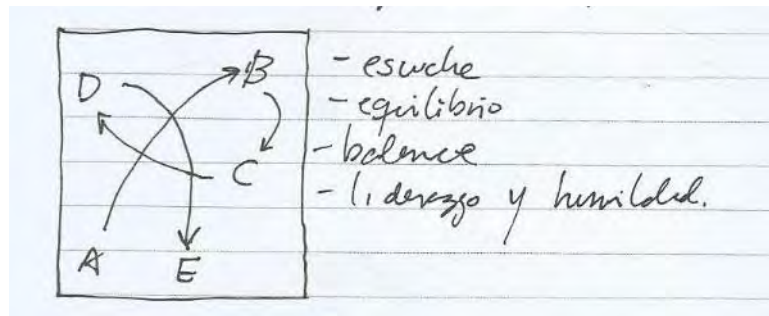 B
D
C
A
E
- escuche
- equilibrio
- balance
- liderazgo y humildad.